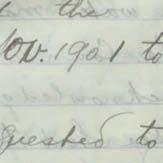 the
Nov. 1901 to
quested to